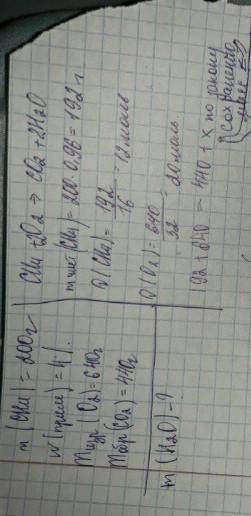 m(CH4) = 200г
W(прим) = 4%
m изр (O2) = 640г
m обр (CO2) = 440г
m(H2O) - ?
CH4 + 2O2 → CO2 + 2H2O
m чист (CH4) = 200 · 0.96 = 192 г
ϑ(CH4) = 192/16 = 12 моль
ϑ(O2) = 640/32 = 20 моль
192 + 640 = 440 + x по закону
(сохранения